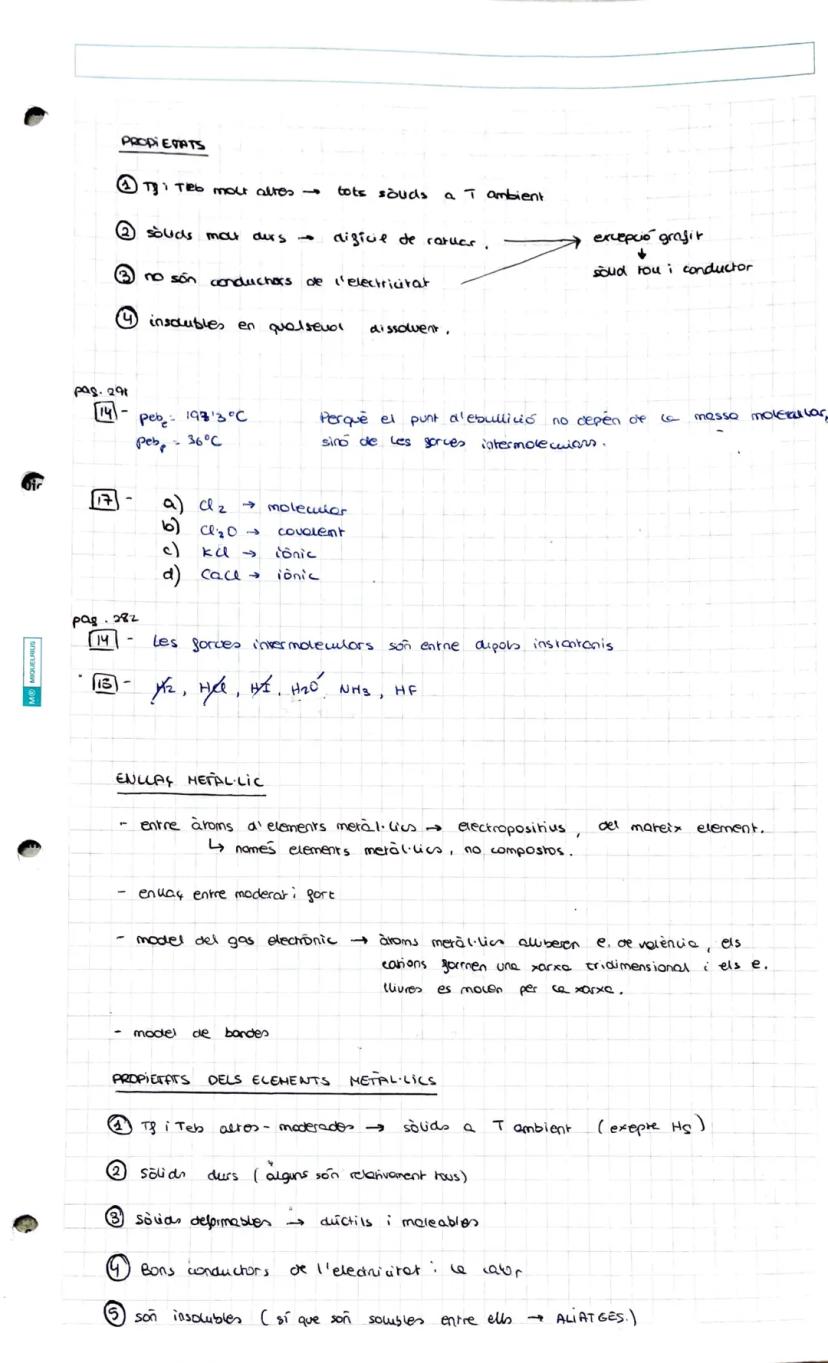 PROPIETATS
① Tf i Teb molt altes → tots sòlids a T ambient
② sòlids molt durs → difícil de ratllar. → excepció grafit
↓
③ no són conductors de l'electricitat sòlid tou i conductor
④ insolubles en qualsevol dissolvent.
pag. 291
14 - peb = 193'3°C Perquè el punt d'ebullició no depèn de la massa molecular,
peb = 36°C sinó de les forces intermoleculars.
17 - a) Cl2 → molecular
b) Cl2O → covalent
c) KCl → iònic
d) CaCl → iònic
pag. 282
14 - Les forces intermoleculars són entre dipols instantanis
15 - H2, HCl, HI, H2O, NH3, HF
M® MIQUELRIUS
ENLLAÇ METAL·LIC
- entre àtoms d'elements metàl·lics → electropositius, del mateix element.
↳ només elements metàl·lics, no compostos.
- enllaç entre moderat i fort
- model del gas electrònic → àtoms metàl·lics alliberen e. de valència, els
cations formen una xarxa tridimensional i els e.
lliures es mouen per la xarxa.
- model de bandes
PROPIETATS DELS ELEMENTS METAL·LICS
① Tf i Teb altes - moderades → sòlids a T ambient (exepte Hg)
② Sòlids durs (alguns són relativament tous)
③ Sòlids deformables → dúctils i maleables
④ Bons conductors de l'electricitat i la calor
⑤ són insolubles (sí que són solubles entre ells → ALIATGES.)